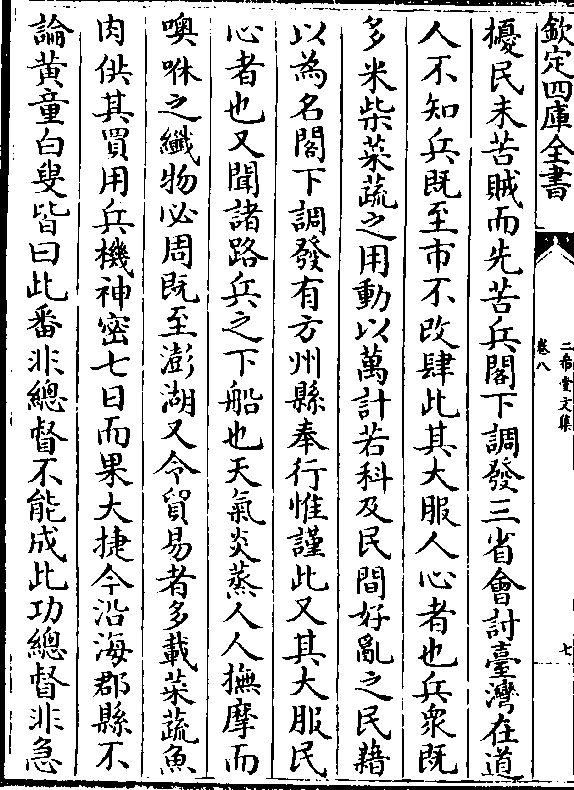 欽定四庫全書
二希堂文集
卷八
七
擾民未苦賊而先苦兵閣下調發三省會討臺灣在道
人不知兵既至市不改肆此其大服人心者也兵衆既
多米柴菜蔬之用動以萬計若科及民間好亂之民藉
以為名閣下調發有方州縣奉行惟謹此又其大服民
心者也又聞諸路兵之下船也天氣炎蒸人人撫摩而
噢咻之纖物必周既至澎湖又令貿易者多載菜蔬魚
肉供其買用兵機神密七日而果大捷今沿海郡縣不
論黃童白叟皆曰此番非總督不能成此功總督非急